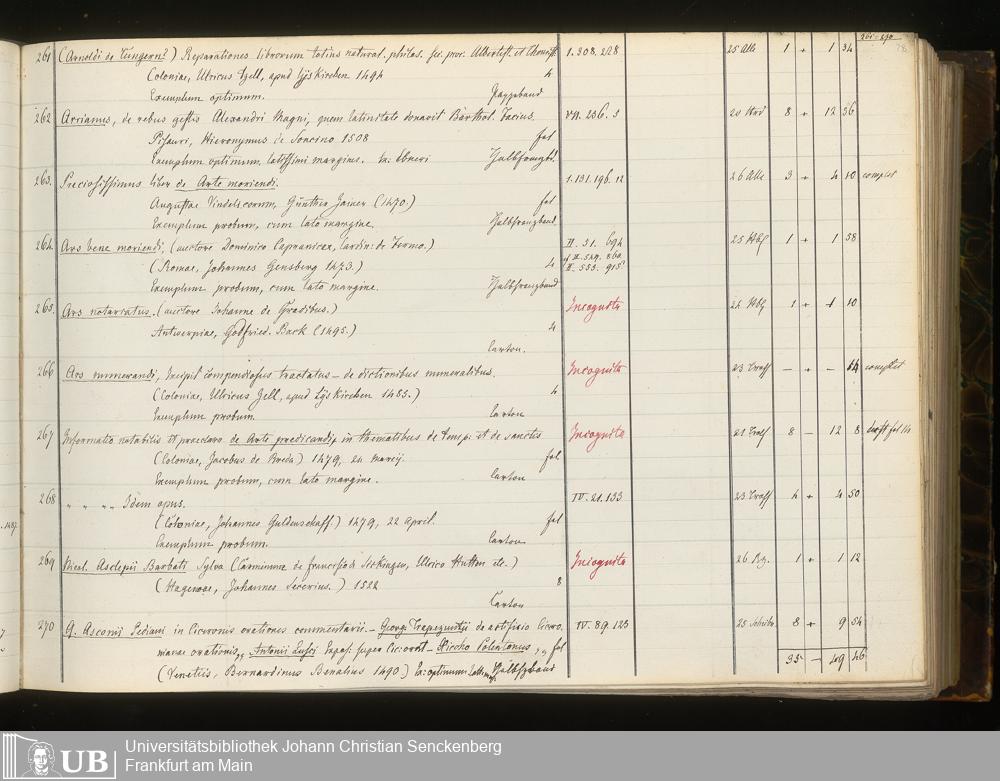 261-270
78
261 (Arnoldi de Tungern?) Reparationes librorum totius natural. philos. sec. proc. Albertist. et Thomist. 1.308.228 25 1 + 1 34
Coloniae, Ulricus Zell, apud Lyskirchen 1494 4
Exemplum optimum. Pappeband
262 Arrianus, de rebus gestis Alexandri Magni, quem latinitate donavit Barthol. Facius. VIII. 236. 3 20 8 + 12 36
Pisauri, Hieronymus de Soncino 1508 fol
Exemplum optimum, latissimi margine. Ex: Ebneri Halbfranzbd.
263. Preciosissimus liber de Arte moriendi. 1.131.196.12 26 3 + 4 10 complet
Augustae Vindelicorum, Günther Zainer (1470.) fol
Exemplum probum, cum lato margine. Halbfranzband
264 Ars bene moriendi, (auctore Dominico Capranicea, Cardin: de Fermo.) II. 31. 694 25 1 + 1 58
(Romae, Johannes Gensberg 1473.) 4 II. 529. 860
II. 553. 915
Exemplum probum, cum lato margine. Halbfranzband
265. Ars notariatus. (auctore Johanne de Gradibus.) Incognita 22 1 + 1 10
Antwerpiae, Godfried. Back (1495.) 4
Carton.
266 Ars numerandi, Incipit compendiosus tractatus – de dictionibus numeralibus. Incognita 23 – + – 14 complet
(Coloniae, Ulricus Zell, apud Lyskirchen 1485.) 4
Exemplum probum. Carton
267 Informatio notabilis et praeclara de Arte praedicandi in thematibus de temp: et de sanctis Incognita 21 8 – 12 8
(Coloniae, Jacobus de Breda) 1479, 24 Marcij. fol
Exemplum probum, cum lato margine. Carton
268 " " " " Idem opus. IV. 21. 133 23 4 + 4 50
(Coloniae, Johannes Guldenschaff.) 1479, 22 April. fol
Exemplum probum. Carton
1487.
269 Nicol. Asclepii Barbati Sylva (Carminum de Francisco Sickingen, Ulrico Hutten etc.) Incognita 26 1 + 1 12
(Hagenoae, Johannes Secerius.) 1522 8
Carton
270 Q. Asconij Pediani in Ciceronis orationes commentarii. – Georg. Trapezuntij de artificio Cicero- IV. 89. 123 25 8 + 9 54
nianae orationis, Antonii Luscj super Cic: orat – Xiccho Polentonus, fol
(Venetiis, Bernardinus Benalius 1490) Ex: optimum Halbfrzband 35 – 49 46
UB Universitätsbibliothek Johann Christian Senckenberg
Frankfurt am Main